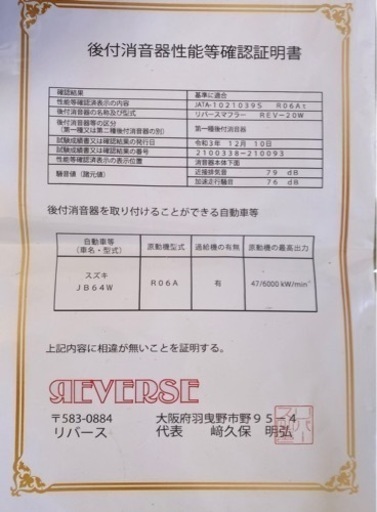 後付消音器性能等確認証明書
確認結果 基準に適合
性能等確認済表示の内容 JATA-1021039S R06At
後付消音器の名称及び型式 リバースマフラー REV-20W
後付消音器等の区分
（第一種又は第二種後付消音器の別） 第一種後付消音器
試験成績書又は確認結果の発行日 令和3年 12月 10日
試験成績書又は確認結果の番号 2100338-210093
性能等確認済表示の表示位置 消音器本体下面
騒音値（諸元値） 近接排気音 79 dB
加速走行騒音 76 dB
後付消音器を取り付けることができる自動車等
自動車等
（車名・型式） 原動機型式 過給機の有無 原動機の最高出力
スズキ
JB64W R06A 有 47/6000 kW/min⁻
上記内容に相違が無いことを証明する。
REVERSE
〒583-0884 大阪府羽曳野市野95-4
リバース 代表 﨑久保 明弘